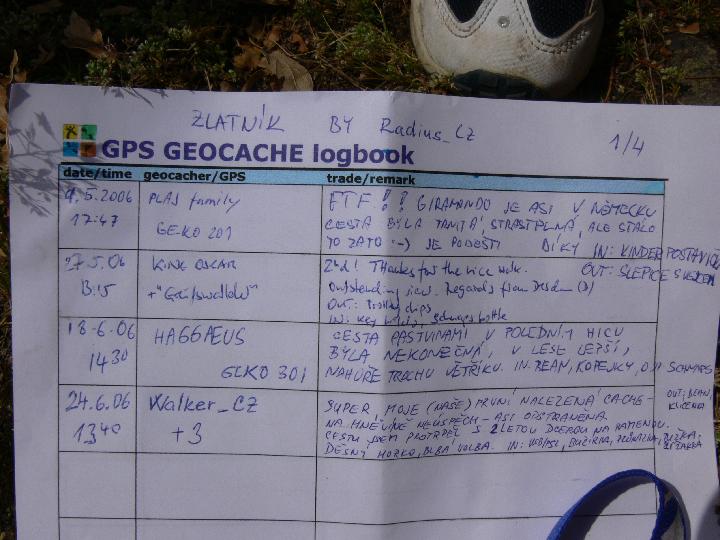 ZLATNÍK BY Radius_CZ 1/4
GPS GEOCACHE logbook
date/time geocacher/GPS trade/remark
9.5.2006 PLAJ family FTF!! GIRAMONDO JE ASI V NĚMECKU
17:47 GEKO 201 CESTA BYLA TRNITÁ, STRASTPLNÁ, ALE STÁLO
TO ZATO :-) JE PODĚSTI DÍKY IN: KINDER POSTAVIČKA
OUT: SLEPICE S VEJCEM
27.5.06 KING OSCAR 2nd! Thanks for the nice walk.
13:15 Outstanding view. Regards from Dresden (D)
OUT:
IN: key schnaps bottle
18.6.06 HAGGAEUS CESTA PASTVINAMI V POLEDNÍM HICU
14 30 GEKO 301 BYLA NEKONEČNÁ, V LESE LEPŠÍ,
NAHOŘE TROCHU VĚTŘÍKU. IN: BEAN, KOPENKY, OUT SCHNAPS
24.6.06 Walker_CZ SUPER, MOJE (NAŠE) PRVNÍ NALEZENÁ CACHE-
OUT: BEAN, KLÍČENKA
13 40 +3 NA HNĚVÍNĚ NEÚSPĚCH - ASI ODSTRANĚNA.
CESTU JSEM PROTRPĚL S 2LETOU DCEROU NA RAMENOU.
DĚSNÝ HORKO, BLBÁ VOLBA. IN: